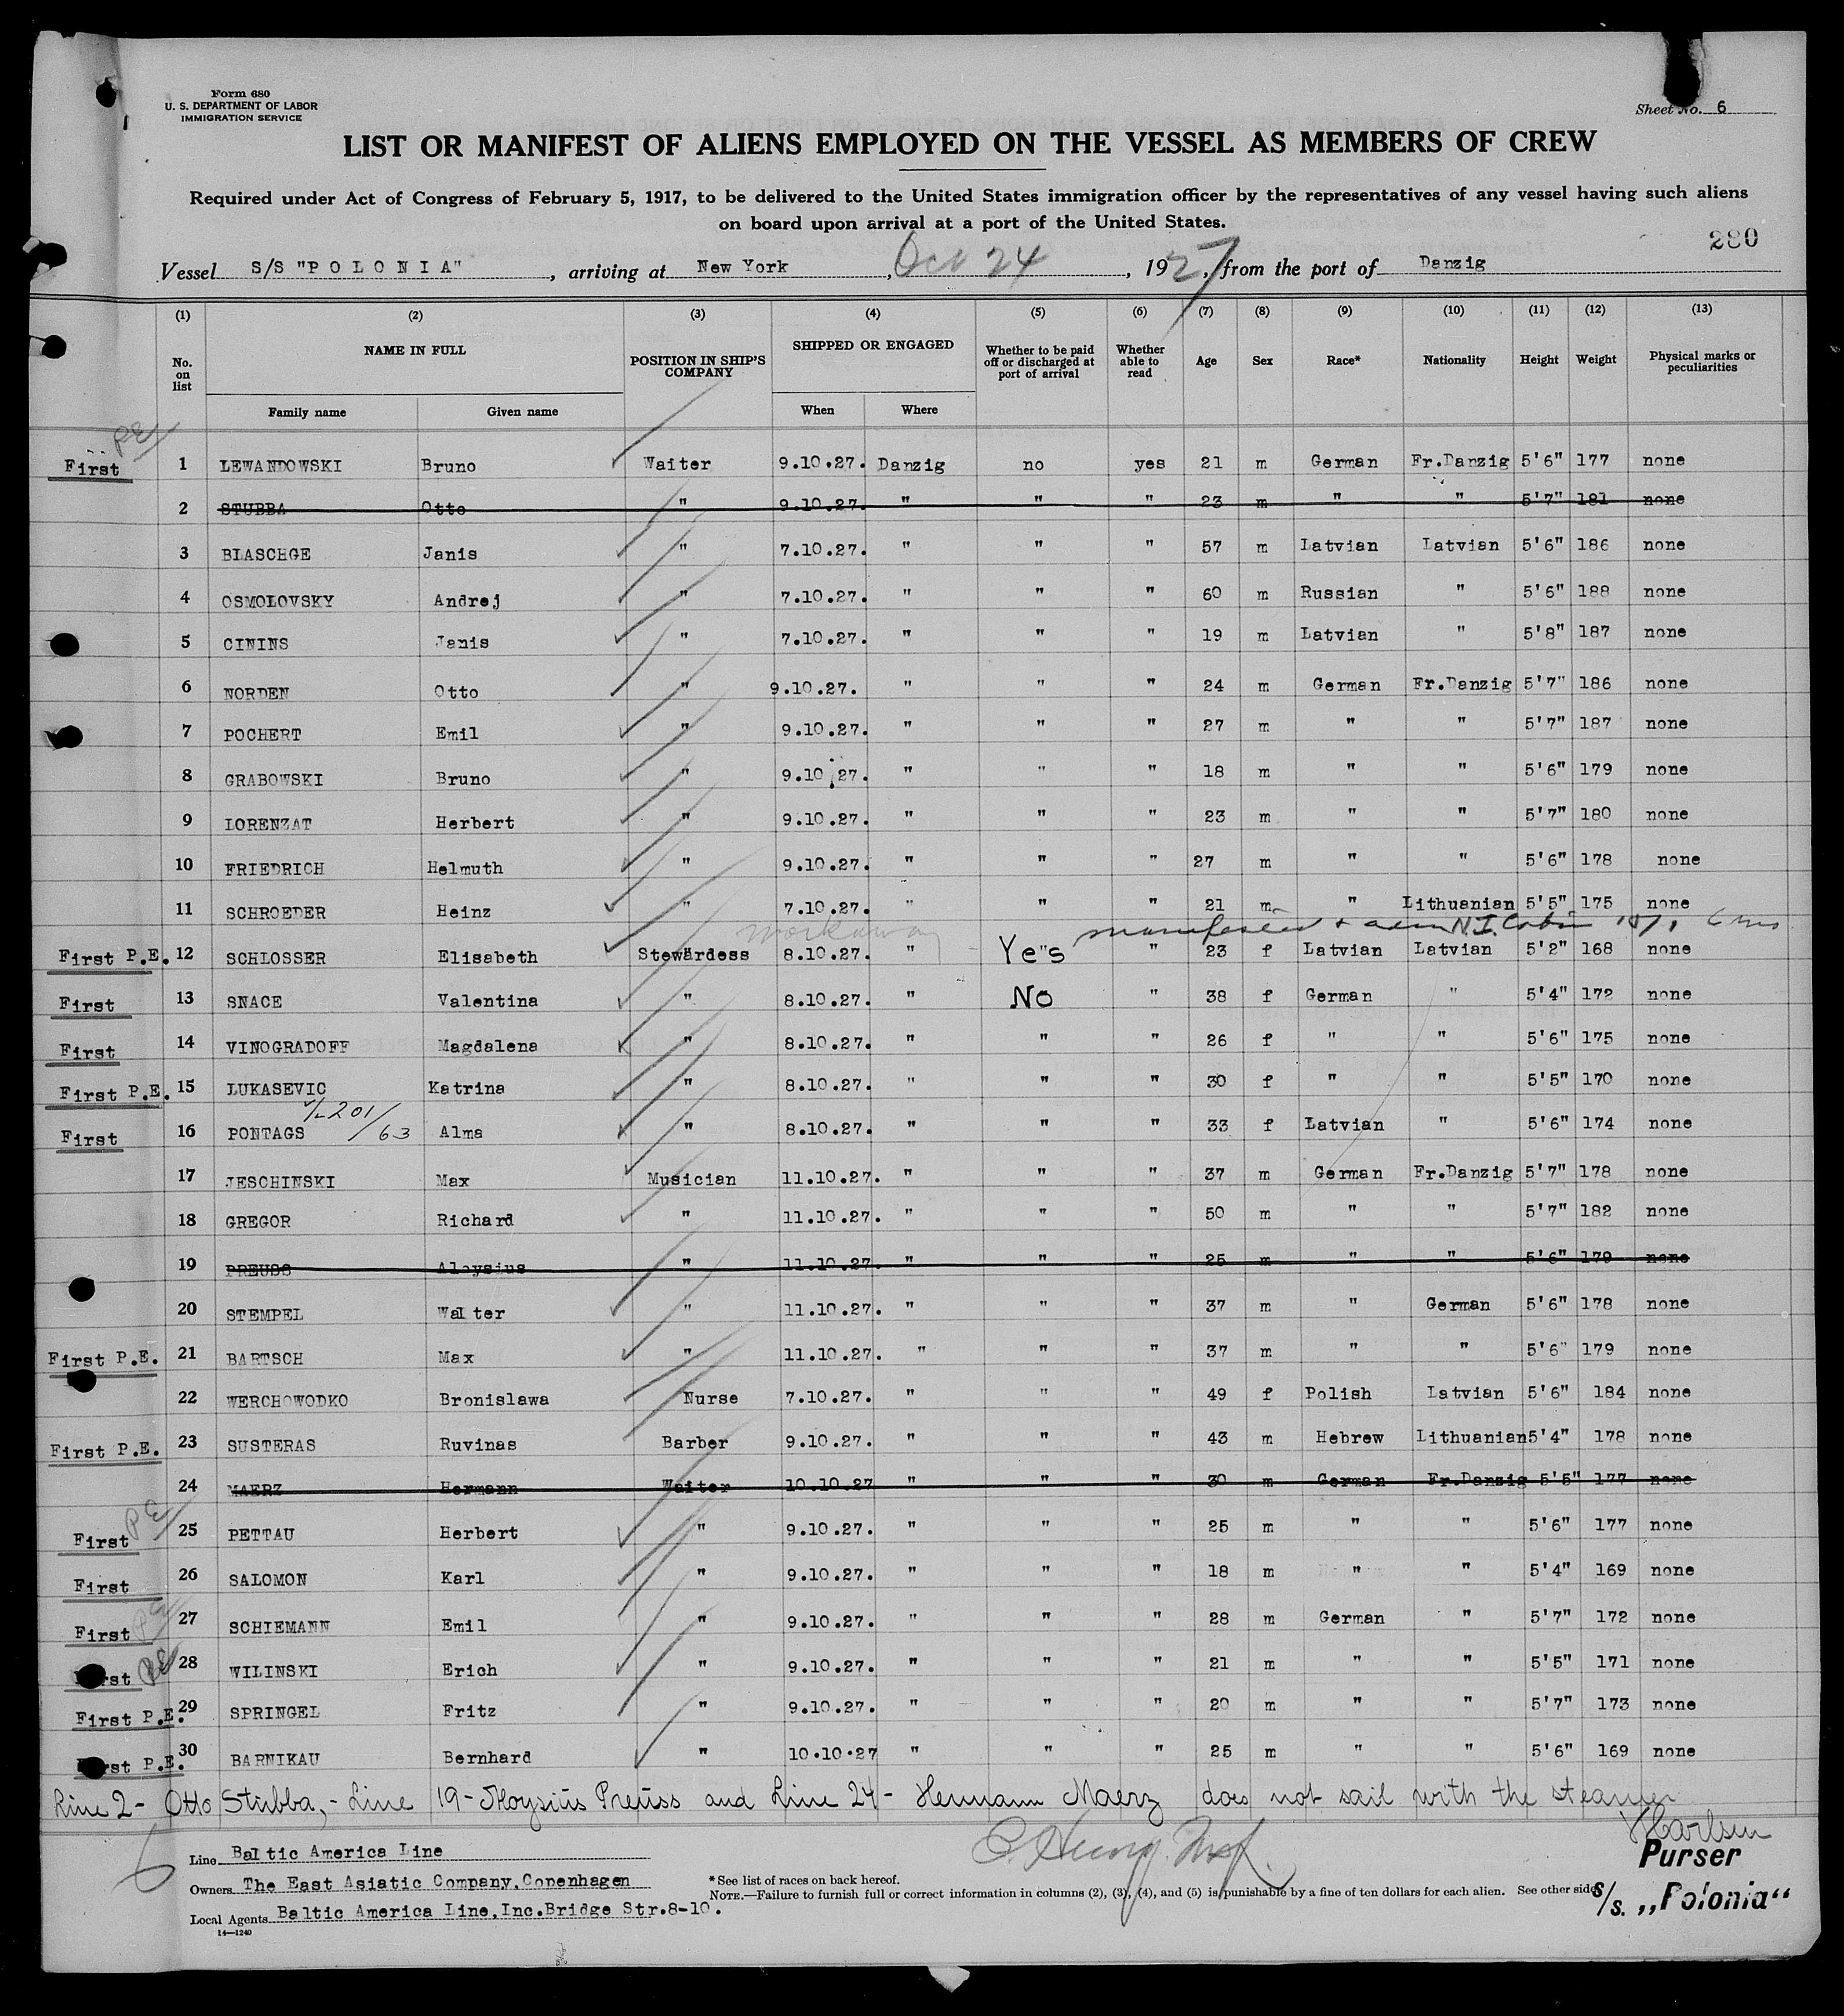 Form 680
U. S. DEPARTMENT OF LABOR
IMMIGRATION SERVICE
Sheet No. 6
LIST OR MANIFEST OF ALIENS EMPLOYED ON THE VESSEL AS MEMBERS OF CREW
Required under Act of Congress of February 5, 1917, to be delivered to the United States immigration officer by the representatives of any vessel having such aliens
on board upon arrival at a port of the United States.
280
Vessel S/S "P O L O N I A", arriving at New York, Oct 24, 1927, from the port of Danzig
(1) (2) (3) (4) (5) (6) (7) (8) (9) (10) (11) (12) (13)
No. on list NAME IN FULL POSITION IN SHIP'S COMPANY SHIPPED OR ENGAGED Whether to be paid off or discharged at port of arrival Whether able to read Age Sex Race* Nationality Height Weight Physical marks or peculiarities
Family name Given name When Where
PE
First 1 LEWANDOWSKI Bruno Waiter 9.10.27. Danzig no yes 21 m German Fr.Danzig 5'6" 177 none
2 STUBBA Otto " 9.10.27. " " " 23 m " " 5'7" 181 none
3 BLASCHGE Janis " 7.10.27. " " " 57 m Latvian Latvian 5'6" 186 none
4 OSMOLOVSKY Andrej " 7.10.27. " " " 60 m Russian " 5'6" 188 none
5 CININS Janis " 7.10.27. " " " 19 m Latvian " 5'8" 187 none
6 NORDEN Otto " 9.10.27. " " " 24 m German Fr.Danzig 5'7" 186 none
7 POCHERT Emil " 9.10.27. " " " 27 m " " 5'7" 187 none
8 GRABOWSKI Bruno " 9.10.27. " " " 18 m " " 5'6" 179 none
9 LORENZAT Herbert " 9.10.27. " " " 23 m " " 5'7" 180 none
10 FRIEDRICH Helmuth " 9.10.27. " " " 27 m " " 5'6" 178 none
11 SCHROEDER Heinz " 7.10.27. " " " 21 m " Lithuanian 5'5" 175 none
workaway manifested + adm N.I.
First P.E. 12 SCHLOSSER Elisabeth Stewardess 8.10.27. " Yes " 23 f Latvian Latvian 5'2" 168 none
First 13 SNACE Valentina " 8.10.27. " No " 38 f German " 5'4" 172 none
First 14 VINOGRADOFF Magdalena " 8.10.27. " " " 26 f " " 5'6" 175 none
First P.E. 15 LUKASEVIC Katrina " 8.10.27. " " " 30 f " " 5'5" 170 none
201/63
First 16 PONTAGS Alma " 8.10.27. " " " 33 f Latvian " 5'6" 174 none
17 JESCHINSKI Max Musician 11.10.27. " " " 37 m German Fr.Danzig 5'7" 178 none
18 GREGOR Richard " 11.10.27. " " " 50 m " " 5'7" 182 none
19 PREUSS Aloysius " 11.10.27. " " " 25 m " " 5'6" 179 none
20 STEMPEL Walter " 11.10.27. " " " 37 m " German 5'6" 178 none
First P.E. 21 BARTSCH Max " 11.10.27. " " " 37 m " " 5'6" 179 none
22 WERCHOWODKO Bronislawa Nurse 7.10.27. " " " 49 f Polish Latvian 5'6" 184 none
First P.E. 23 SUSTERAS Ruvinas Barber 9.10.27. " " " 43 m Hebrew Lithuanian 5'4" 178 none
24 MAERZ Hermann Waiter 10.10.27 " " " 30 m German Fr.Danzig 5'5" 177 none
First PE 25 PETTAU Herbert " 9.10.27. " " " 25 m " " 5'6" 177 none
First 26 SALOMON Karl " 9.10.27. " " " 18 m " " 5'4" 169 none
First PE 27 SCHIEMANN Emil " 9.10.27. " " " 28 m German " 5'7" 172 none
First PE 28 WILINSKI Erich " 9.10.27. " " " 21 m " " 5'5" 171 none
First P.E. 29 SPRINGEL Fritz " 9.10.27. " " " 20 m " " 5'7" 173 none
First P.E. 30 BARNIKAU Bernhard " 10.10.27 " " " 25 m " " 5'6" 169 none
Line 2 - Otto Stubba, - Line 19 - Aloysius Preuss and Line 24 - Hermann Maerz does not sail with the steamer
6
Line Baltic America Line
Owners The East Asiatic Company, Copenhagen
Local Agents Baltic America Line, Inc. Bridge Str. 8-10.
14—1240
* See list of races on back hereof.
NOTE.—Failure to furnish full or correct information in columns (2), (3), (4), and (5) is punishable by a fine of ten dollars for each alien. See other side.
Purser
S/s. „Polonia“